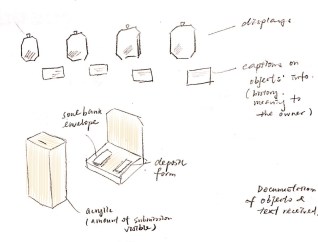 displays
captions on
objects' info.
(history,
meaning to
the owner)
soul bank
envelope
deposit
form
acrylic
(amount of submission
visible)
Documentation
of objects &
text received.